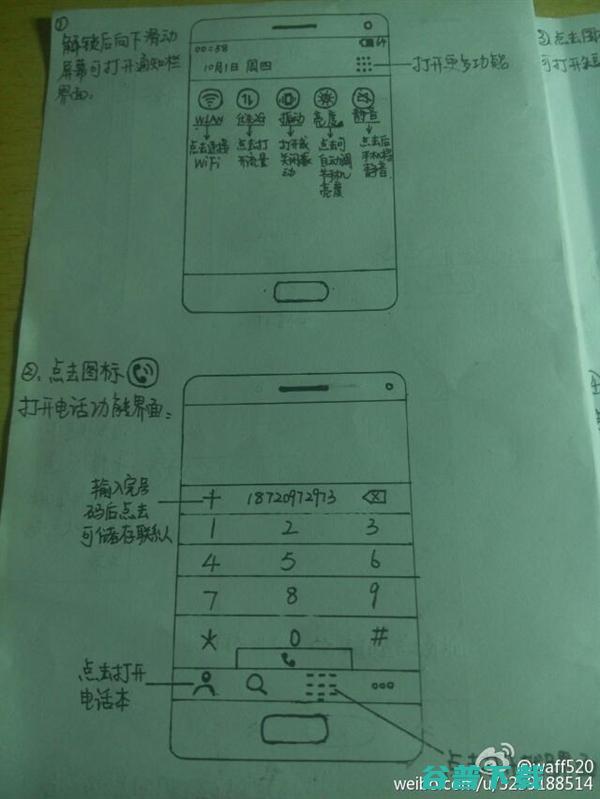 ①
解锁后向下滑动
屏幕可打开通知栏
界面。
00:58
64
10月1日 周四
打开更多功能
WLAN
振动
亮度
静音
点击连接
WiFi
点击打
开流量
打开或
关闭振
动
点击可
自动调
节手机
亮度
点击后
手机
静音
③点击图
可打
②、点击图标
打开电话功能界面：
输入完号
码后点击
可储存联系人
+ 18720972973
1 2 3
4 5 6
7 8 9
* 0 #
点击打开
电话本
点击
@waff520
谷普下载